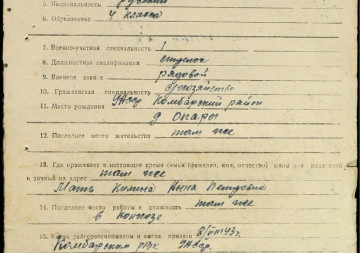 5. Национальность русский
6. Образование 4 класса
7. Военно-учетная специальность 1
8. Должностная квалификация стрелок
9. Военное звание рядовой
10. Гражданская специальность
11. Место рождения УАССР Камбарский район
д Опары
12. Последнее место жительства там же
13. Где проживает в настоящее время семья (фамилия, имя, отчество)
и точный их адрес там же
Мать Килина Анна Петровна
14. Последнее место работы и должность там же
в колхозе
15. Каким райгорвоенкоматом и когда призван 8/VIII 43 г.
Камбарским рвк УАССР